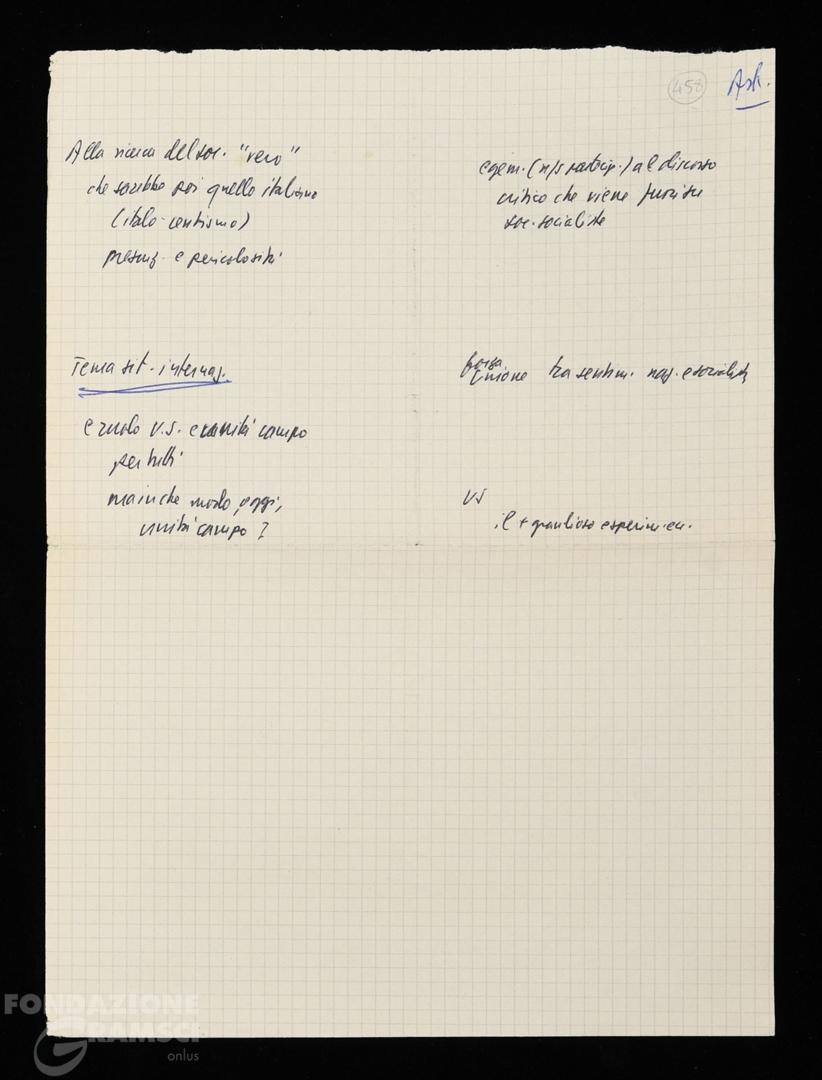 458
Alla ricerca del soc. "vero"
che sarebbe poi quello italiano
(italo-centrismo)
presenz. e pericolosità
egem. (n/s partecip.) al discorso
critico che viene
soc. socialiste
Tema sit. internaz.
e ruolo U.S. e unità campo
per tutti
ma in che modo, oggi,
unità campo?
forza
Unione tra sentim. naz. e socialista
US
il + grandioso esperimen.
FONDAZIONE
GRAMSCI
onlus